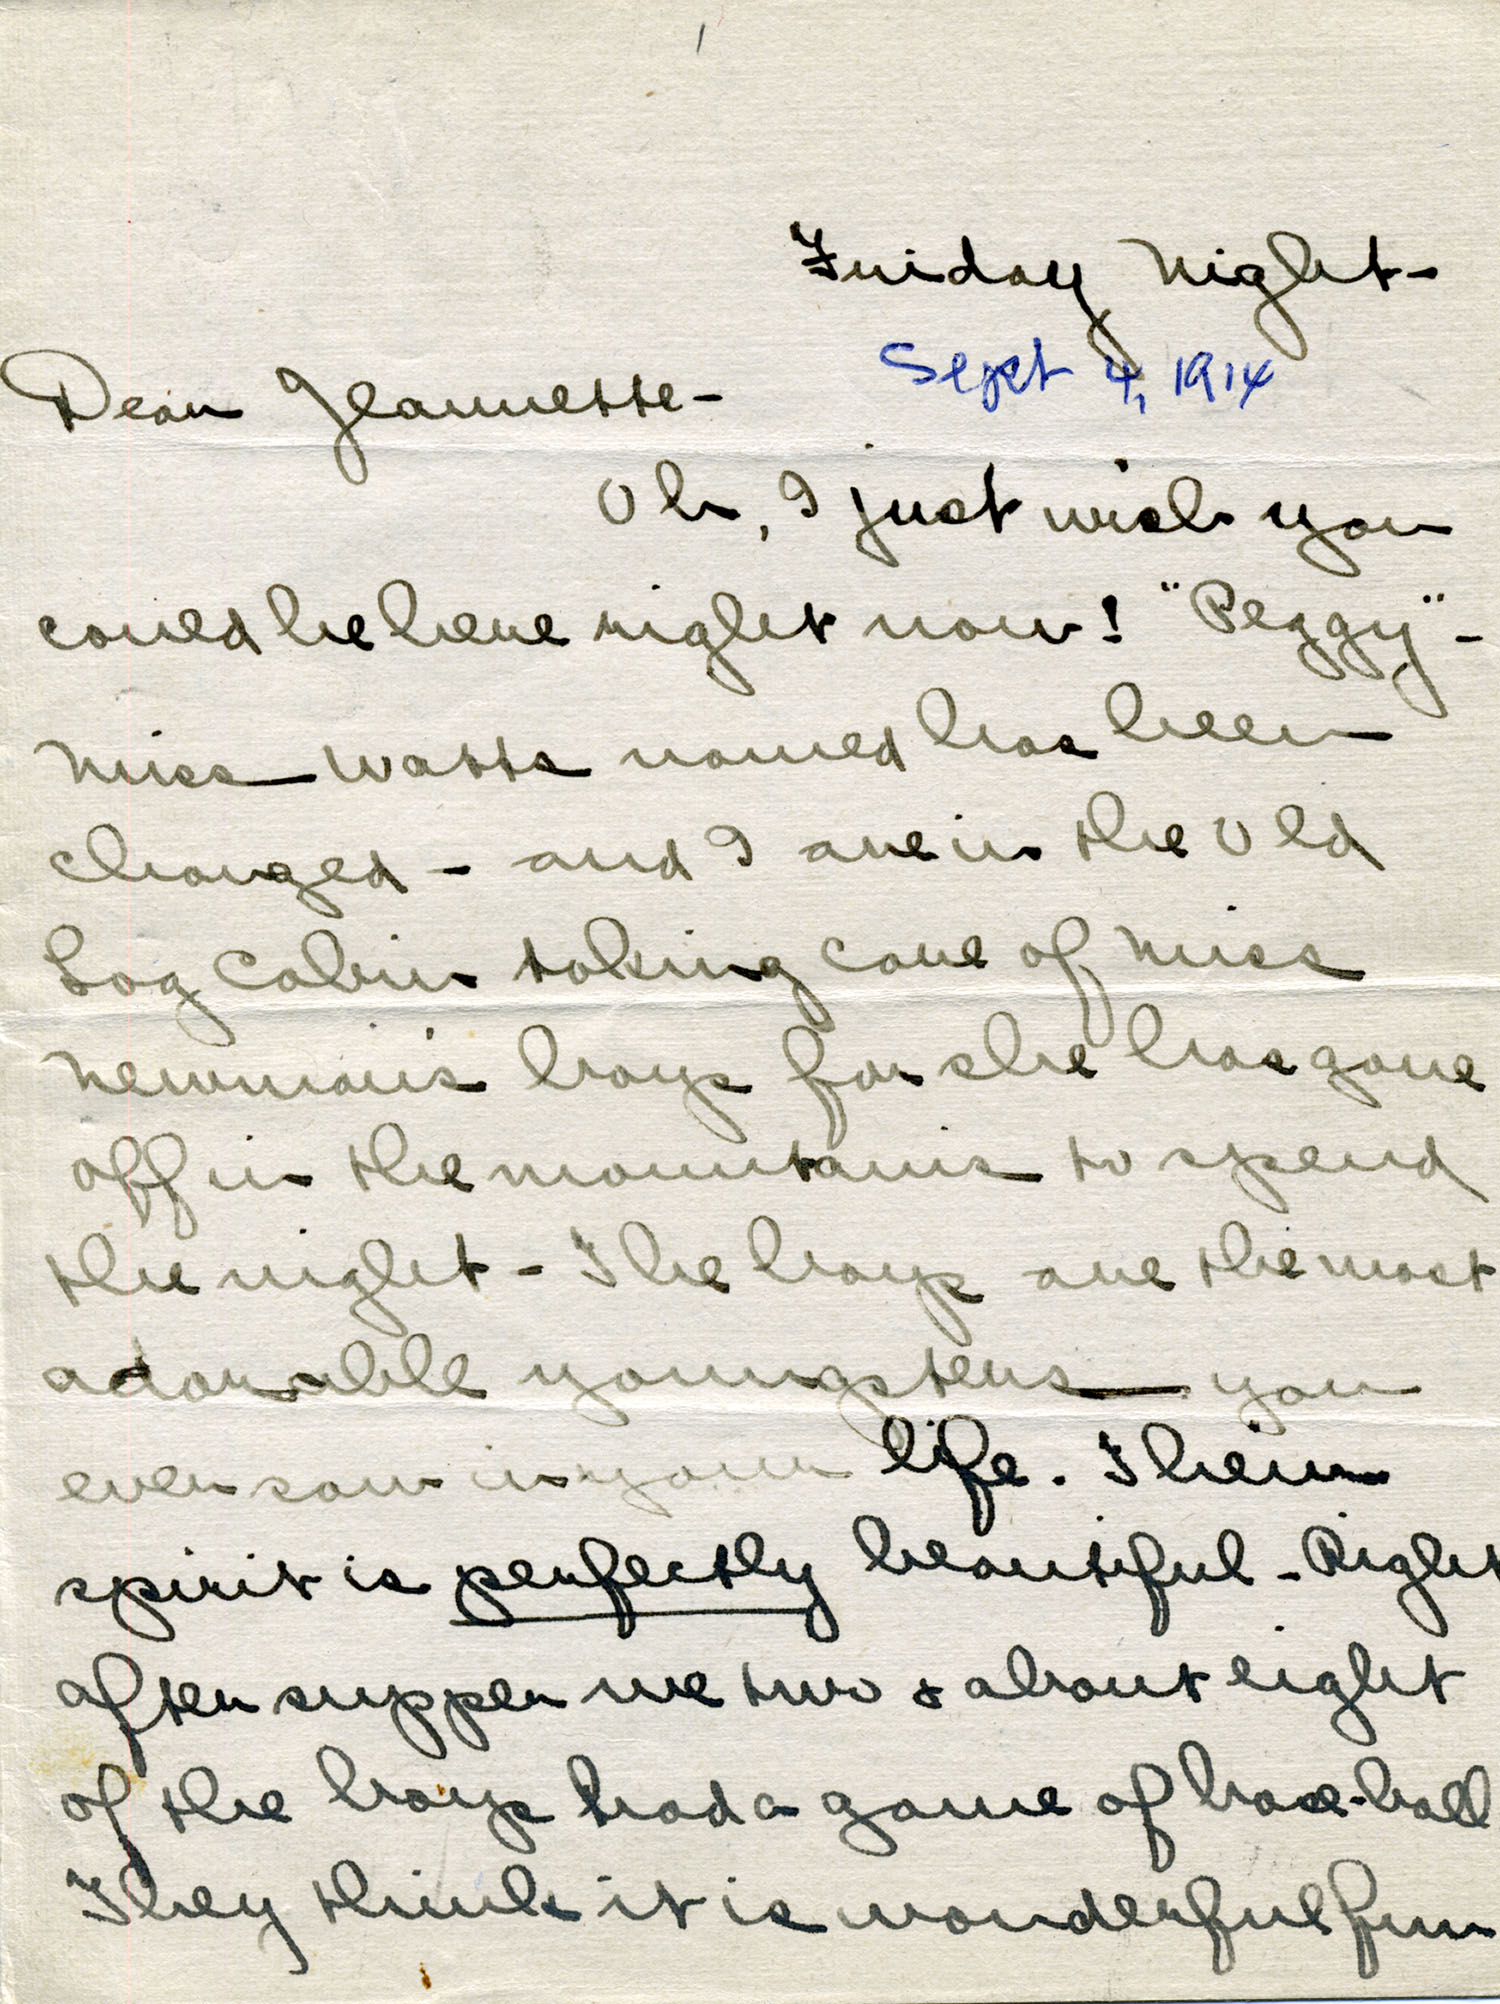 Friday Night-
Sept 4, 1914
Dear Jeannette-
Oh, I just wish you
could be here right now! "Peggy"-
Miss Watts named has been
changed - and I are in the Old
Log Cabin taking care of Miss
Newman's boys for she has gone
off in the mountains to spend
the night - The boys are the most
adorable youngsters - you
ever saw in your life. Their
spirit is perfectly beautiful - Right
after supper we two & about eight
of the boys had a game of base-ball
They think it is wonderful fun